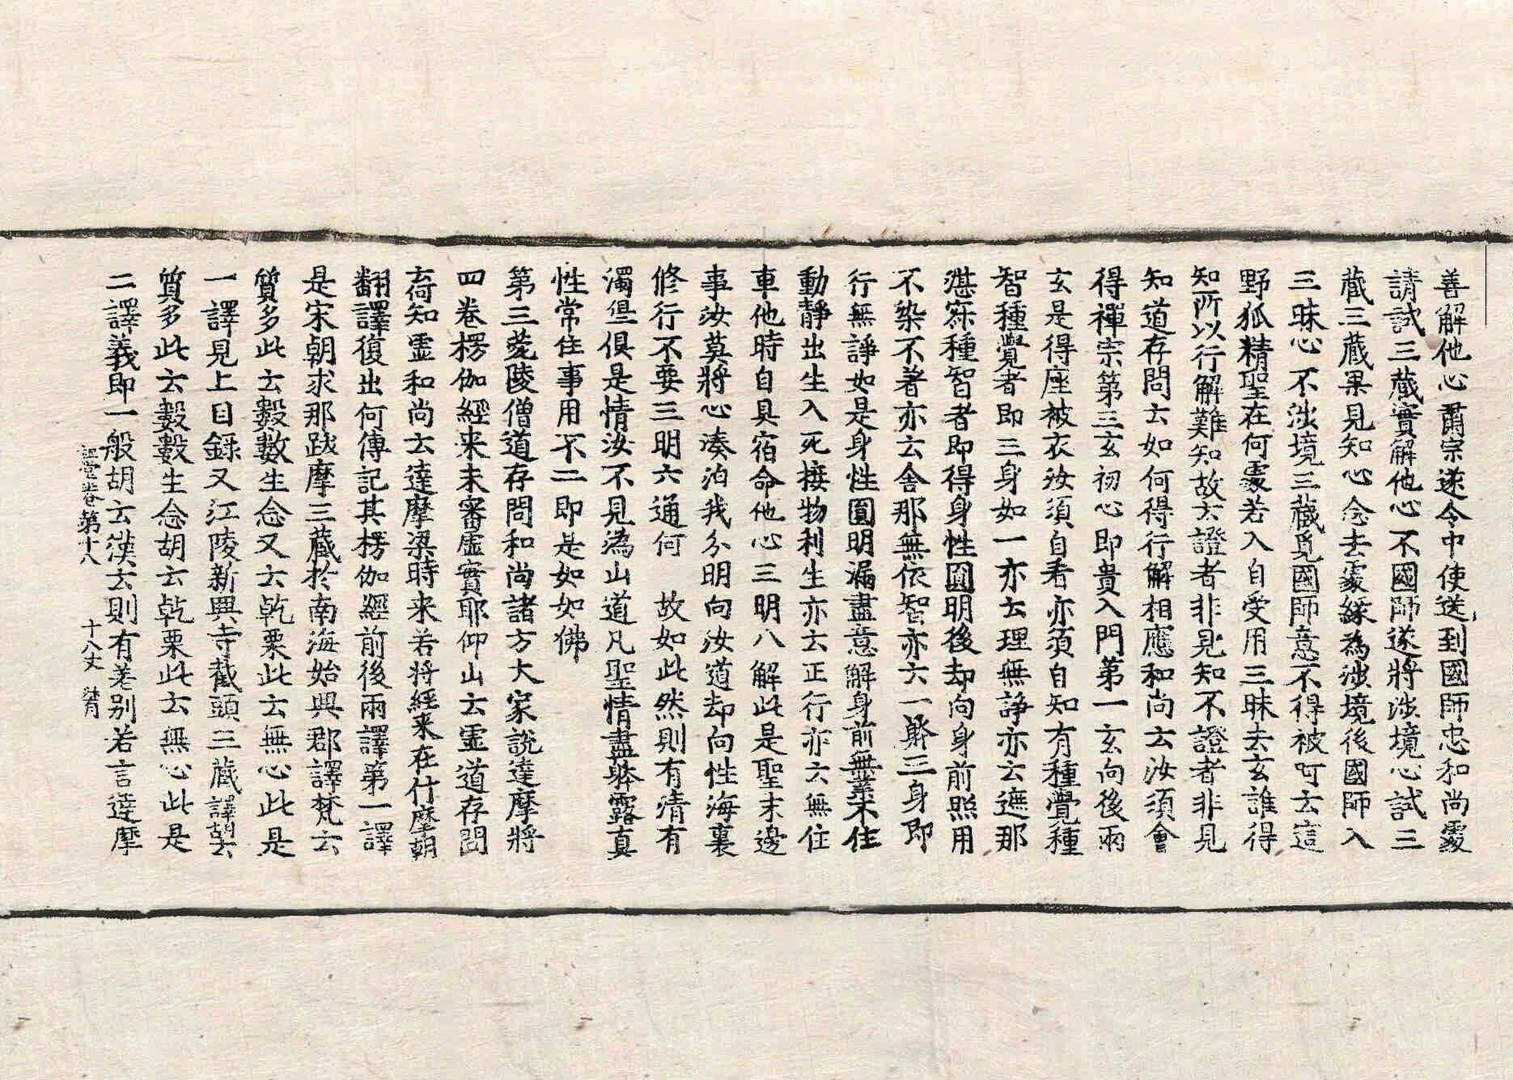 善解他心肅宗遂令中使送到國師忠和尚處
請試三藏實解他心不國師遂將涉境心試三
藏三藏果見知心念去處緣為涉境後國師入
三昧心不涉境三藏覓國師意不得被呵云這
野狐精聖在何處若入自受用三昧去玄誰得
知所以行解難知故云證者非見知不證者非見
知道存問云如何得行解相應和尚云汝須會
得禪宗第三玄初心即貴入門第一玄向後兩
玄是得座被衣汝須自看亦須自知有種覺種
智種覺者即三身如一亦云理無諍亦云遮那
湛寂種智者即得身性圓明後却向身前照用
不染不著亦云舍那無依智亦六一躰三身即
行無諍如是身性圓明漏盡意解身前無業不住
動靜出生入死接物利生亦云正行亦六無住
車他時自具宿命他心三明八解此是聖末邊
事汝莫將心湊泊我分明向汝道却向性海裏
修行不要三明六通何 故如此然則有清有
濁但俱是情汝不見溈山道凡聖情盡躰露真
性常住事用不二即是如如佛
第三菀陵僧道存問和尚諸方大家說達摩將
四卷楞伽經来未審虛實耶仰山云虛道存問
玄何知虛和尚云達摩梁時来若將經来在什摩朝
翻譯復出何傳記其楞伽經前後兩譯第一譯
是宋朝求那跋摩三藏於南海始興郡譯梵云
質多此云數數生念又云乾栗此云無心此是
一譯見上目録又江陵新興寺截頭三藏譯胡云
質多此云數數生念胡云乾栗此云無心此是
二譯義即一般胡云漢云則有差别若言達摩
祖堂卷第十八 十八丈